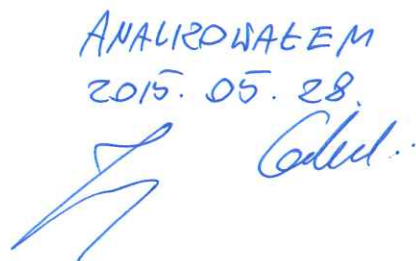 ANALIZOWAŁEM
2015. 05. 28.